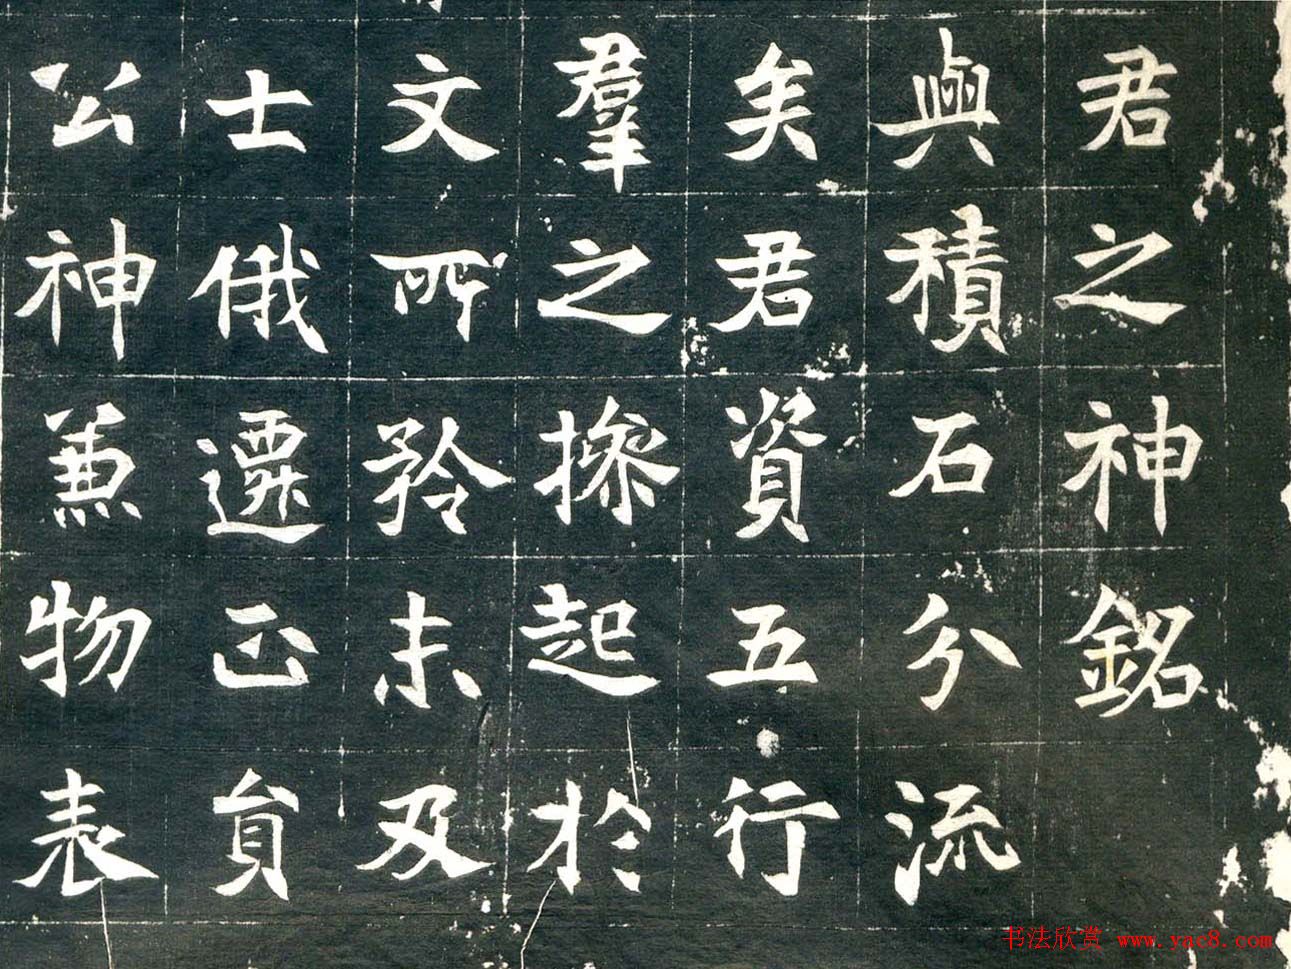 君之神銘
與積石分流
矣君資五行
羣之摻起於
文所矜未及
士俄遷正員
公神兼物表
书法欣赏 www.yac8.com